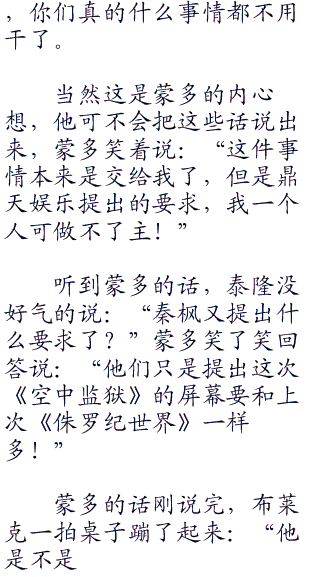 ，你们真的什么事情都不用
干了。
当然这是蒙多的内心
想，他可不会把这些话说出
来，蒙多笑着说：“这件事
情本来是交给我了，但是鼎
天娱乐提出的要求，我一个
人可做不了主！”
听到蒙多的话，泰隆没
好气的说：“秦枫又提出什
么要求了？”蒙多笑了笑回
答说：“他们只是提出这次
《空中监狱》的屏幕要和上
次《侏罗纪世界》一样
多！”
蒙多的话刚说完，布莱
克一拍桌子蹦了起来：“他
是不是